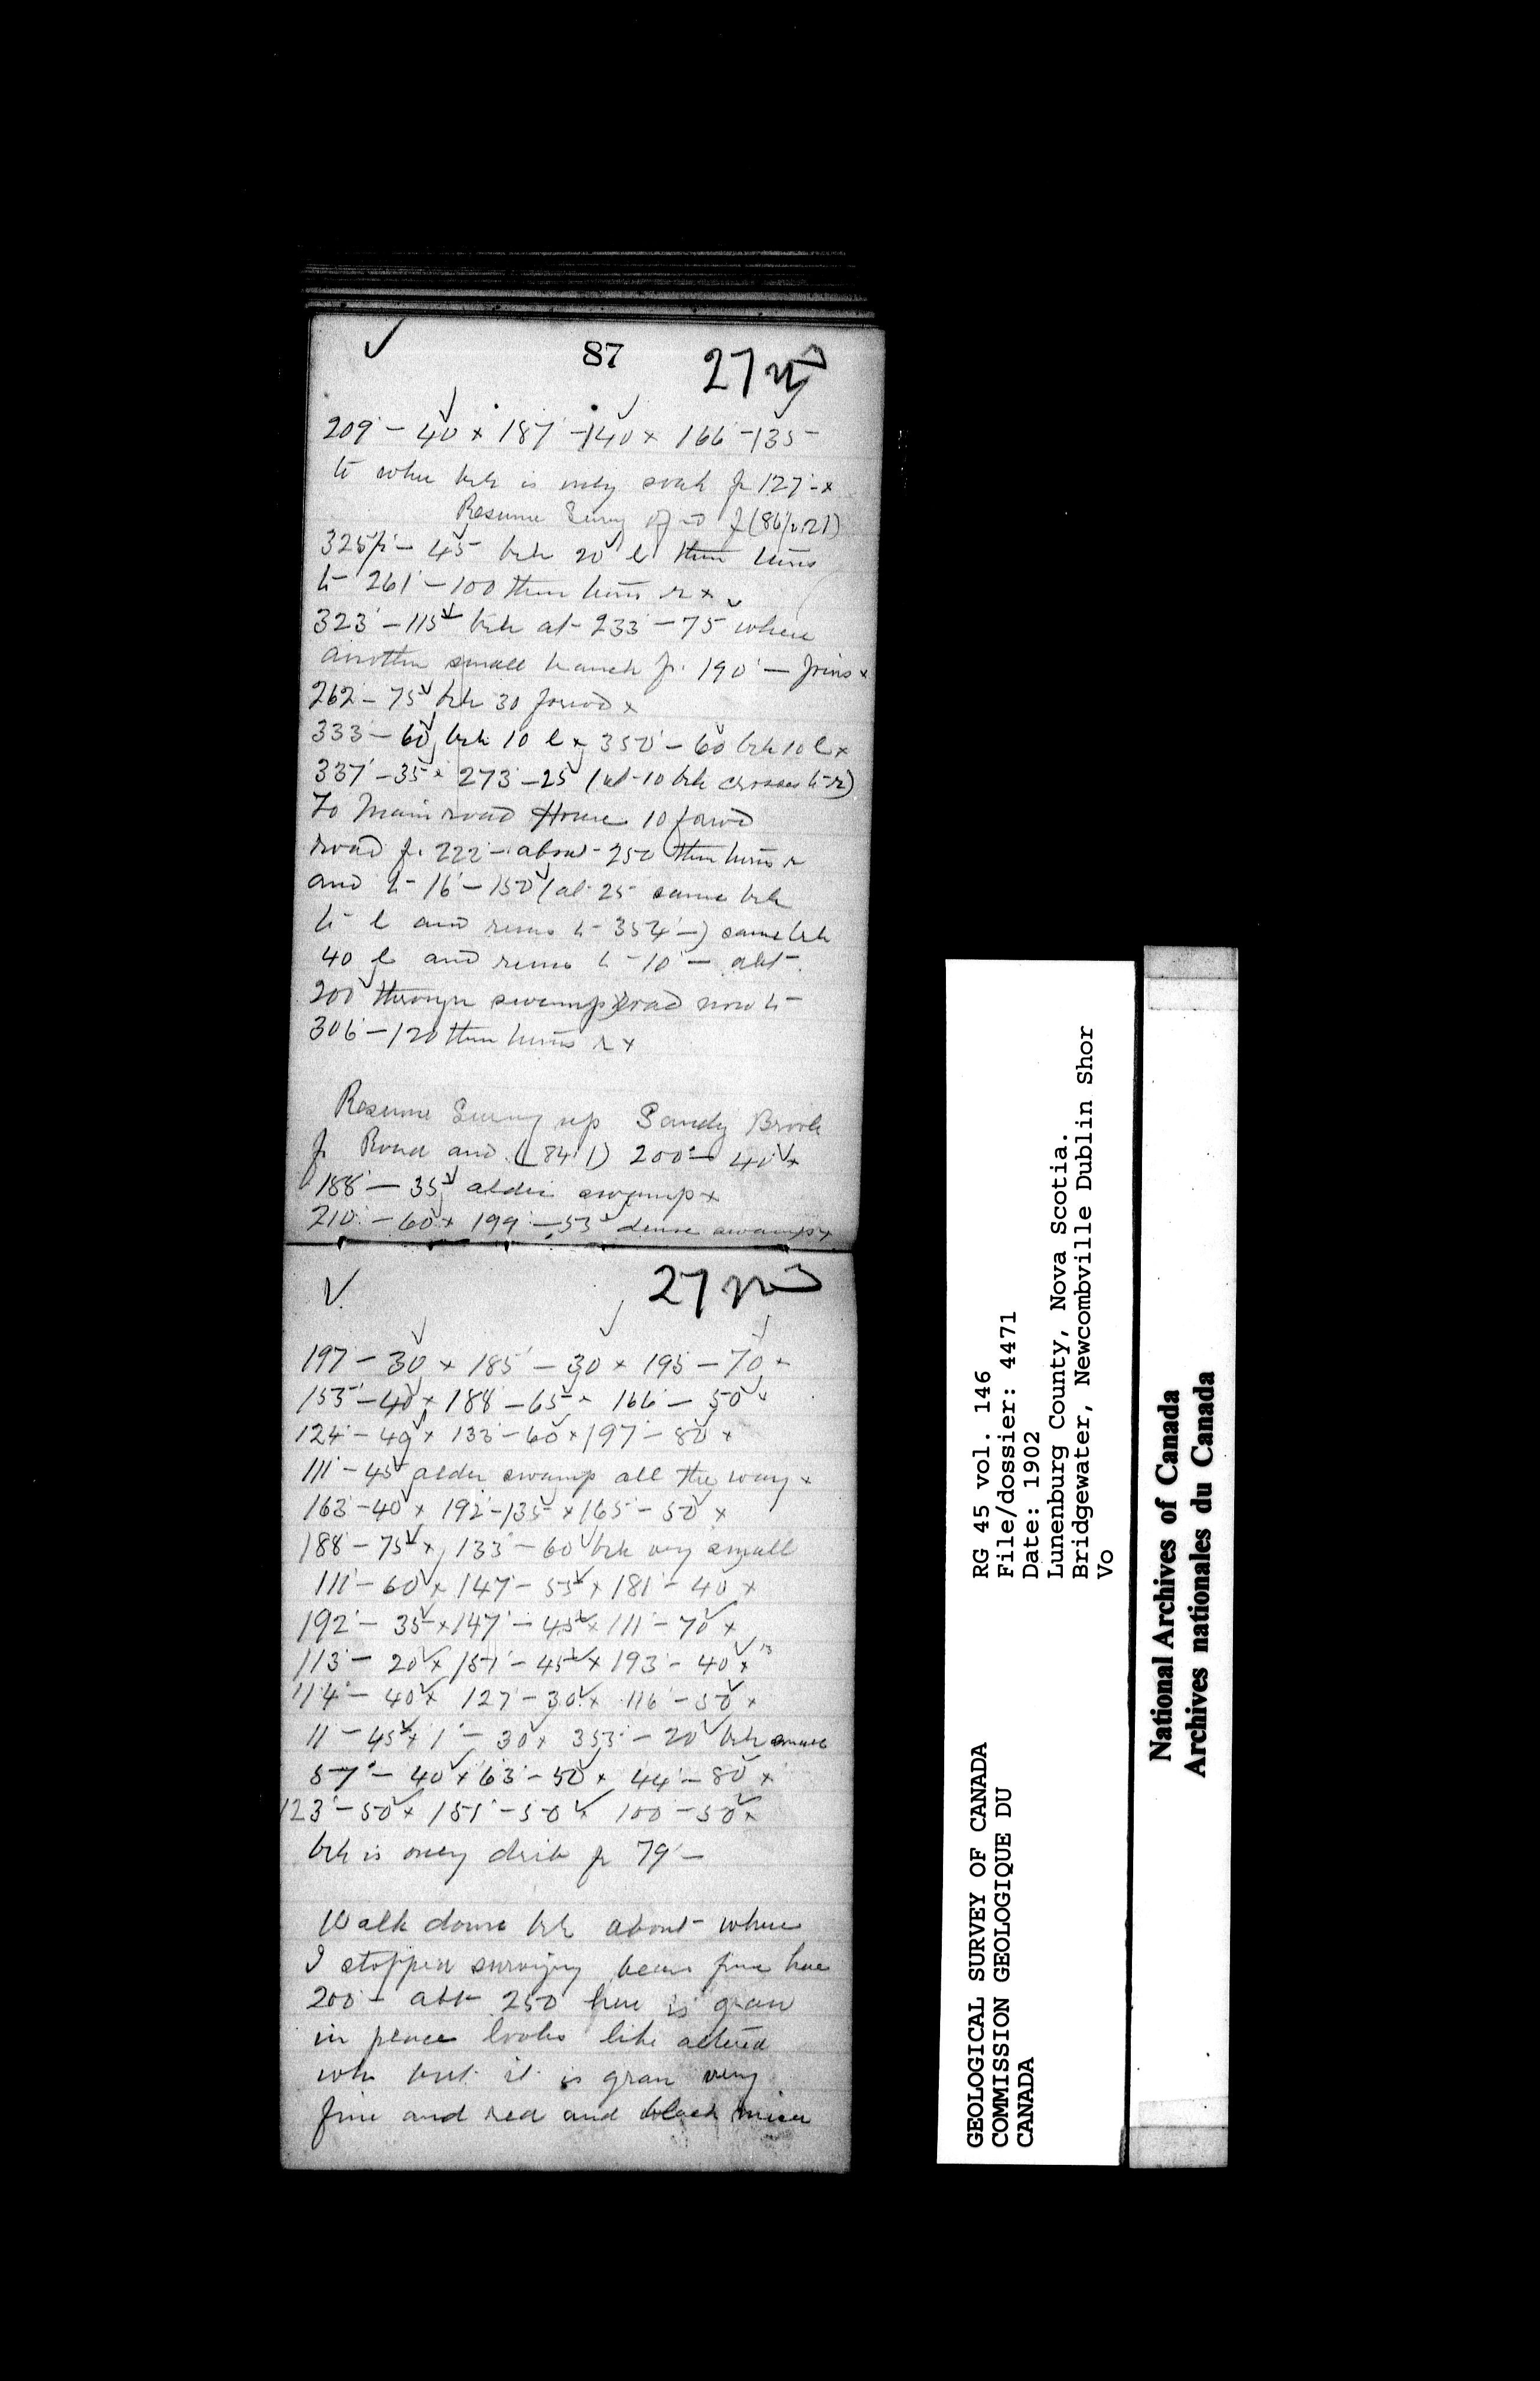 87 27
209° – 40 x 187° – 140 x 166 – 135
to where brk is only soak fr 127° – x
Resume Survey of rd f (86
325 – 45 brk 20 l then turns
to 261° – 100 then turns r x
323° – 115 brk at 233° – 75 where
another small branch fr. 190° – joins x
262 – 75 brk 30 forwd x
333 – 60 brk 10 l x 350° – 60 brk 10 l x
337° – 35 x 273° – 25 (at 10 brk crosses to r)
To Main road House 10 forwd
road fr. 222° – about 250 then turns r
and to 16° – 150 (at 25 same brk
to l and runs to 354° –) same brk
40 l and runs to 10° – abt
200 through swamp) road now to
306° – 120 then turns r x
Resume Survey up Sandy Brook
fr Road and (84 l) 200° – 40 x
188° – 35 alder swamp x
210° – 60 x 199° – 53 dense swamp x
27
197 – 30 x 185° – 30 x 195 – 70 x
153° – 40 x 188 – 65 x 166 – 50 x
124° – 40 x 133° – 60 x 197° – 80 x
111° – 45 alder swamp all the way x
163° – 40 x 192° – 135 x 165° – 50 x
188 – 75 x 133° – 60 brk very small
111° – 60 x 147° – 55 x 181° – 40 x
192° – 35 x 147° – 45 x 111 – 70 x
113° – 20 x 151° – 45 x 193° – 40 x
114° – 40 x 127° – 30 x 116° – 50 x
11 – 45 x 1° – 30 x 353° – 20 brk small
57° – 40 x 63° – 50 x 44° – 80 x
123° – 50 x 151° – 50 x 100 – 50 x
brk is only fr 79° –
Walk down brk about where
I stopped surveying
200° – abt 250 here is gran
in place looks like altered
but it is gran very
fine and red and black mica
GEOLOGICAL SURVEY OF CANADA
COMMISSION GEOLOGIQUE DU
CANADA
RG 45 vol. 146
File/dossier: 4471
Date: 1902
Lunenburg County, Nova Scotia.
Bridgewater, Newcombville Dublin Shor
Vo
National Archives of Canada
Archives nationales du Canada